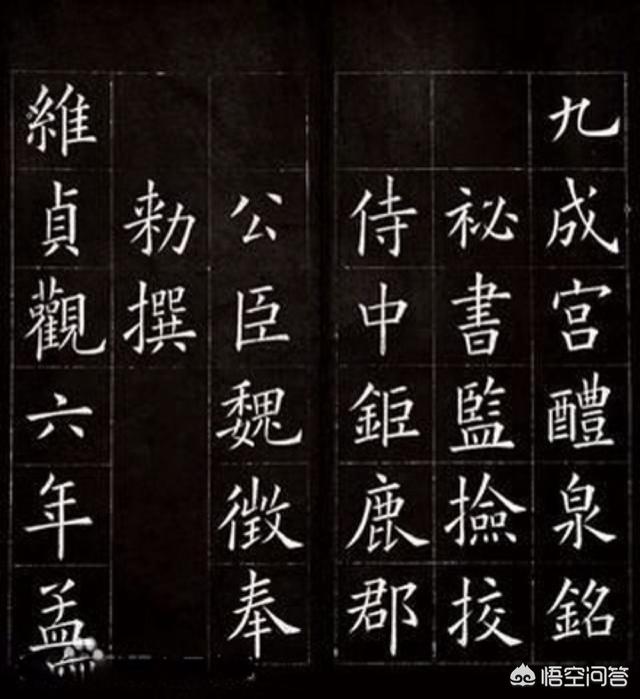 九成宮醴泉銘
祕書監撿挍
侍中鉅鹿郡
公臣魏徵奉
勑撰
維貞觀六年孟
悟空问答